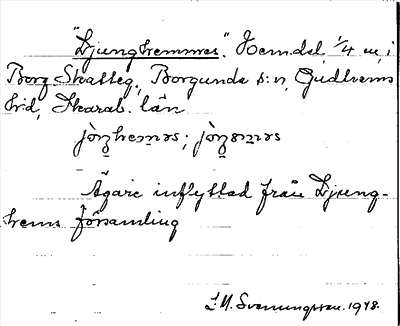 "Ljunghemmes". Hemdel, 1/4 m, i
Borg Skatteg., Borgunda s:n, Gudhems
hrd, Skarab. län
Ägare inflyttad från Ljung-
hems församling
S.M. Svenungsson. 1978.